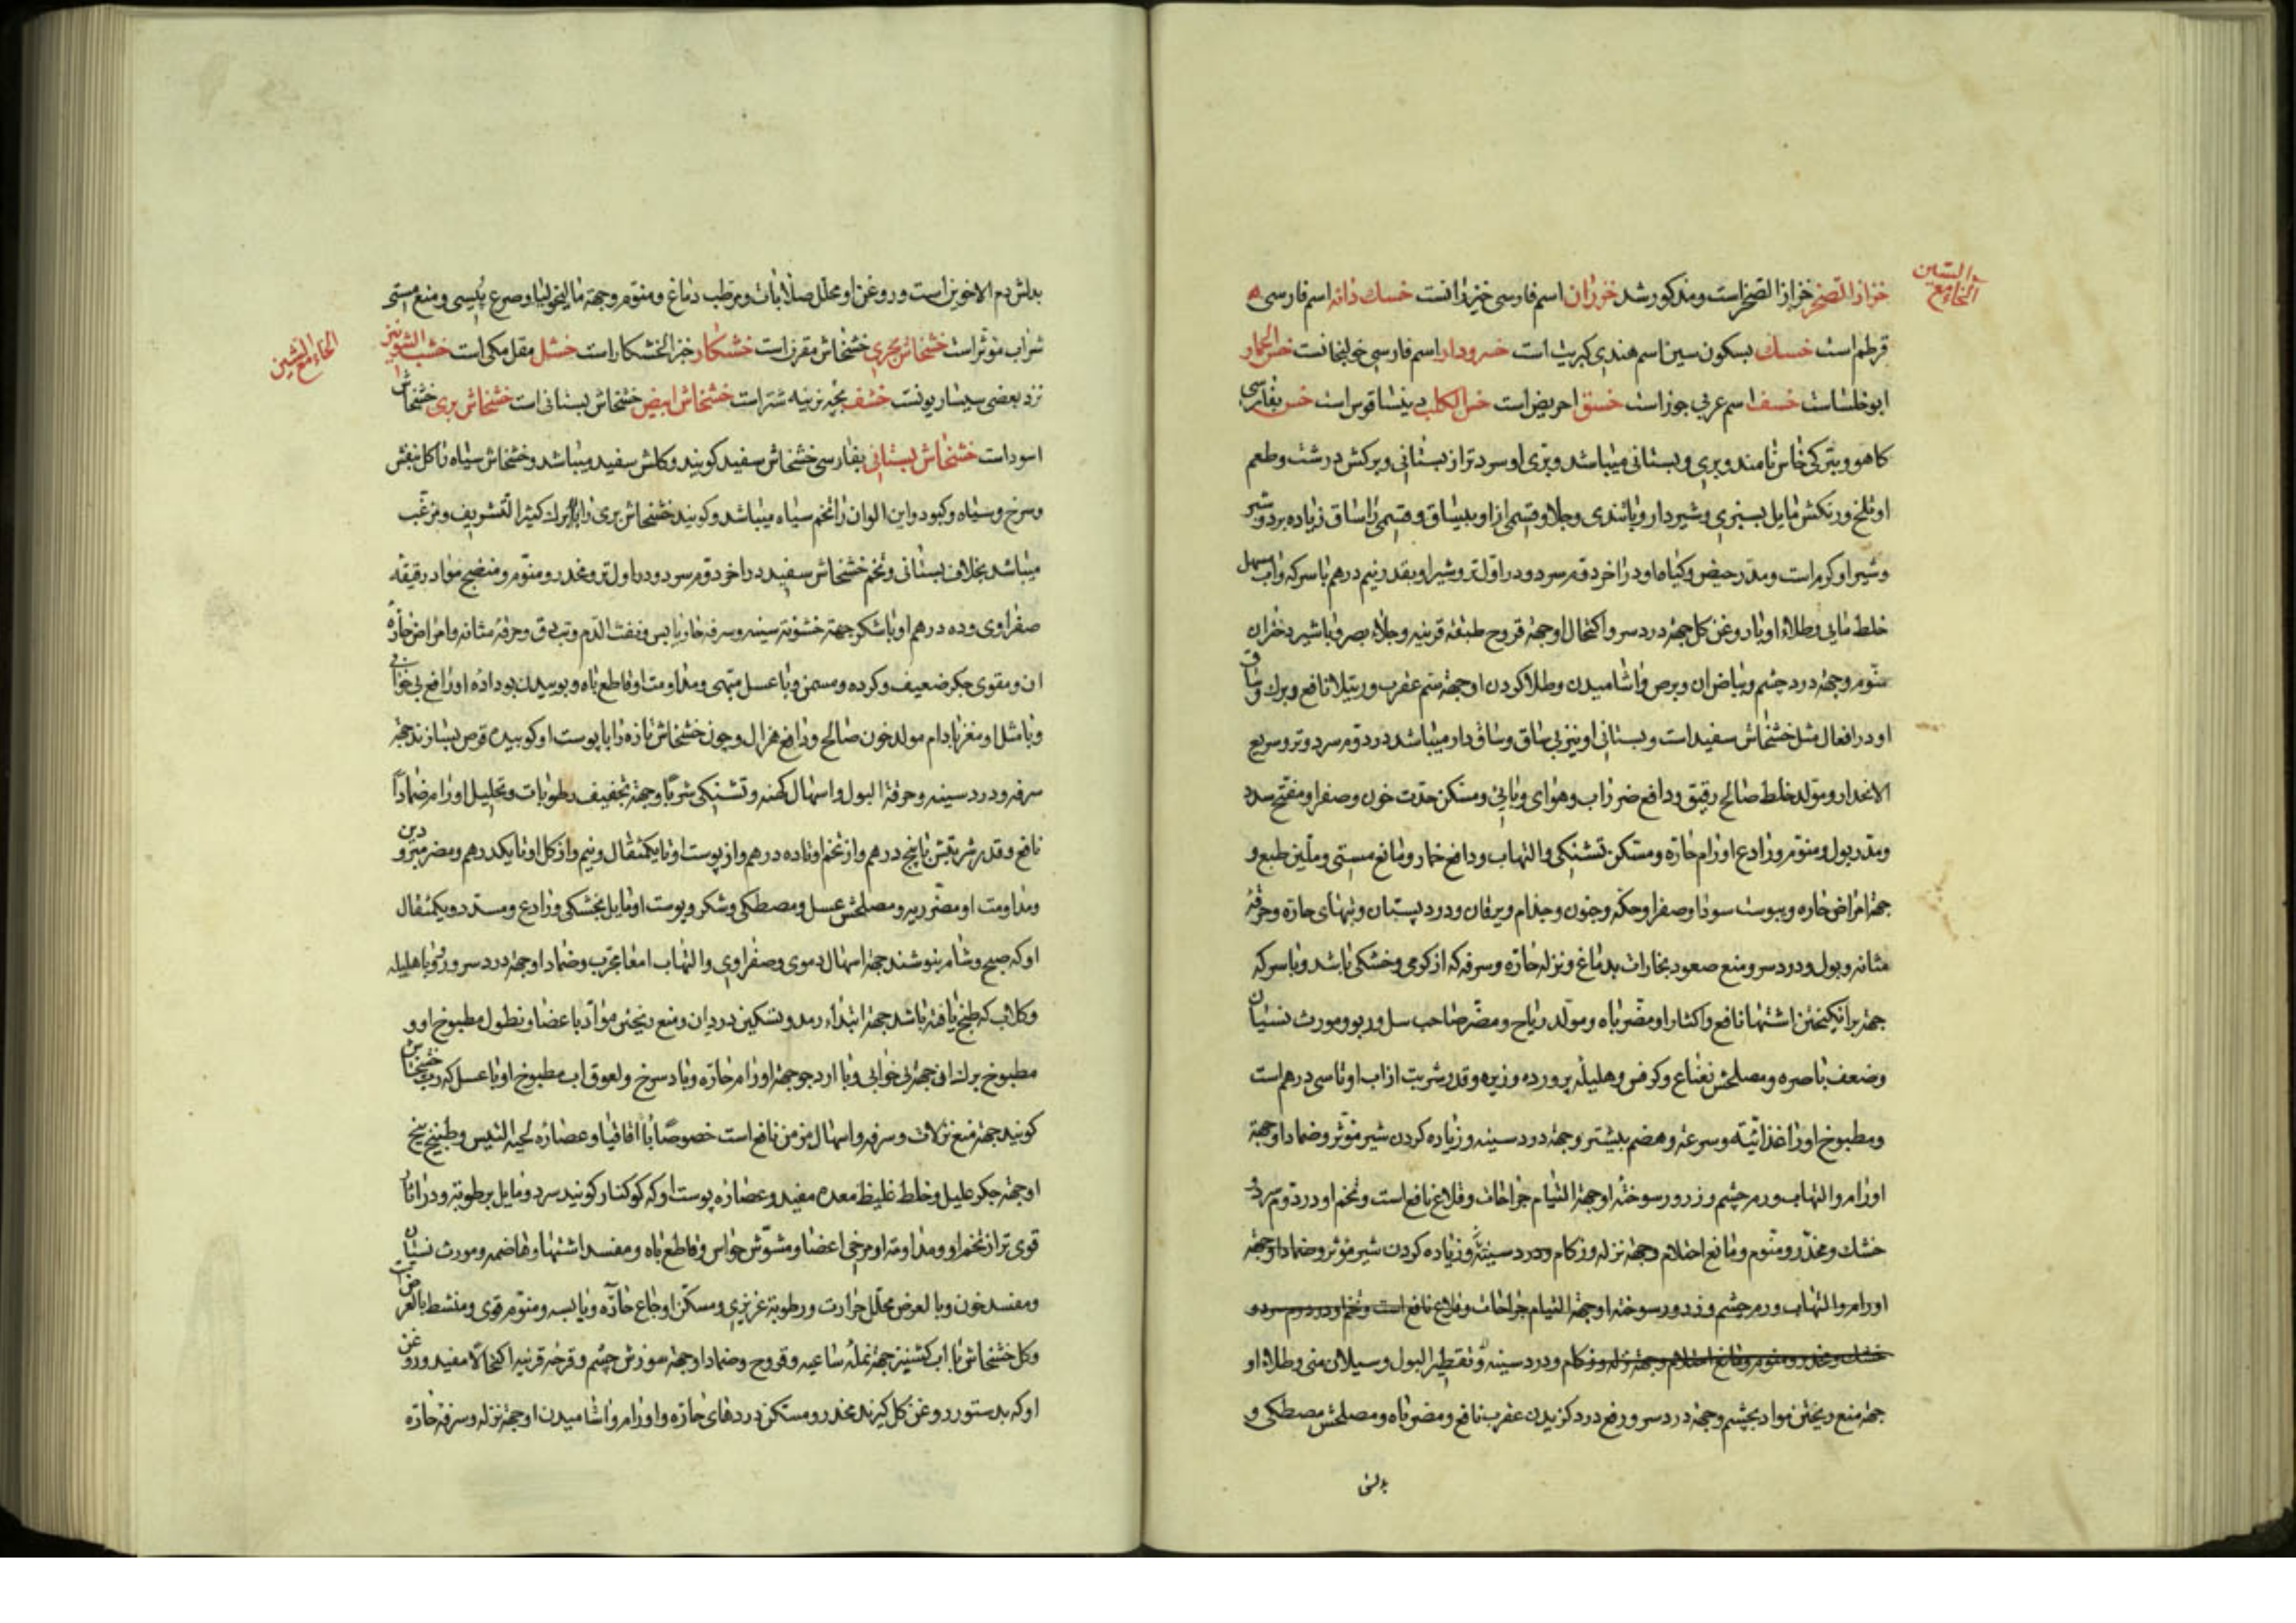 الخاء مع السین
خزاز الصخر خزاز الصخر است و مذکور شد خزران اسم فارسی خیزرانست خسک دانه اسم فارسی
قرطم است خسک بسکون سین اسم هندی کبریت است خسرودار اسم فارسی خولنجانست خس الحمار
ابوخلساست خسف اسم عربی جوز است خسق احریض است خس الکلب دینساقوس است خس بفارسی
کاهو و بترکی خاس نامند و بری و بستانی میباشد و بری او سردتر از بستانی و برکش درشت و طعم
او تلخ و رنکش مایل بسبزی و شیردار و باتندی و جلا و قسمی از او بیساق و قسمی را ساق زیاده بر دو شبر
و شیر او کرم است و مدر حیض و کیاه او در اخر دوم سرد و در اول تر و شیر او بقدر نیم درهم با سرکه و اب مسهل
خلط مایی و طلاء او با روغن کل جهة درد سر و اکتحال او جهة قروح طبقه قرنیه و جلاء بصر و با شیر دختران
منوم و جهة درد چشم و بیاض ان و برص و اشامیدن و طلا کردن او جهة سم عقرب و رتیلا نافع و برک و ساق
او در افعال مثل خشخاش سفید است و بستانی او نیز بی ساق و ساق دار میباشد در دوم سرد و تر و سریع
الانحدار و مولد خلط صالح رقیق و دافع ضرر اب و هوای وبایی و مسکن حدت خون و صفرا و مفتح سدد
و مدر بول و منوم و رادع اورام حاره و مسکن تشنکی و التهاب و دافع خمار و مانع مستی و ملین طبع و
جهة امراض حاره و یبوست سودا و صفرا و حکه و جنون و جذام و یرقان و درد پستان و تبهای حاره و حرقة
مثانه و بول و درد سر و منع صعود بخارات بدماغ و نزله حاره و سرفه که از کرمی و خشکی باشد و با سرکه
جهة برانکیختن اشتها نافع و اکثار او مضر باه و مولد ریاح و مضر صاحب سل و ربو و مورث نسیان
و ضعف باصره و مصلحش نعناع و کرفس و هلیله پرورده و زیره و قدر شربت از اب او تا سی درهم است
و مطبوخ او را غذائیته و سرعة هضم بیشتر و جهة درد سینه و زیاده کردن شیر موثر و ضماد او جهة
اورام و التهاب و رم چشم و زرور سوخته او جهة التیام جراحات و قلاع نافع است و تخم او در دوم سرد و
خشک و مخدر و منوم و مانع احتلام و جهة نزله و زکام و درد سینه و زیاده کردن شیر موثر و ضماد او جهة
اورام و التهاب و رم چشم و زرور سوخته او جهة التیام جراحات و قلاع نافع است و تخم او در دوم سرد و
خشک و مخدر و منوم و مانع احتلام و جهة نزله و زکام و درد سینه و تقطیر البول و سیلان منی و طلاء او
جهة منع ریختن مواد بچشم و جهة درد سر و رفع درد کزیدن عقرب نافع و مضر باه و مصلحش مصطکی و
بدلش
بدلش دم الاخوین است و روغن او محلل صلابات و مرطب دماغ و منوم و جهة مالیخولیا و صرع یبسی و منع مستی
شراب موثر است خشخاش بحری خشخاش مقرن است خشکار خبز الخشکار است خشل مقل مکی است خشب الشونیز
الخاء مع الشین
نزد بعضی سیساریونست خشف بچه نرینه شتر است خشخاش ابیض خشخاش بستانی است خشخاش بری خشخاش
اسود است خشخاش بستانی بفارسی خشخاش سفید کویند و کلش سفید میباشد و خشخاش سیاه را کل بنفش
و سرخ و سیاه و کبود و این الوان را تخم سیاه میباشد و کویند خشخاش بری را برک کثیر التشریف و مزغب
میباشد بخلاف بستانی و تخم خشخاش سفید در اخر دوم سرد و در اول تر و مخدر و منوم و منضج مواد رقیقه
صفراوی و ده درهم او با شکر جهة خشونة سینه و سرفه حار یابس و نفث الدم و تب دق و حرقة مثانه و امراض حاره
ان و مقوی جکر ضعیف و کرده و مسمن و با عسل مبهی و مداومت او قاطع باه و بوییدن بو داده او رافع بی خوابی
و با مثل او مغز بادام مولد خون صالح و رافع هزال و چون خشخاش تازه را با پوست او کوبیده قرص بسازند جهة
سرفه و درد سینه و حرقة البول و اسهال کهنه و تشنکی شربا و جهة تجفیف رطوبات و تحلیل اورام ضمادا
نافع و قدر شربتش تا پنج درهم و از تخم او تا ده درهم و از پوست او تا یکمثقال و نیم و از کل او تا یکدرهم و مضر مبرودین
و مداومت او مضر ریه و مصلحش عسل و مصطکی و شکر و پوست او مایل بخشکی و رادع و مسدد و یکمثقال
او که صبح و شام بنوشند جهة اسهال دموی و صفراوی و التهاب امعا مجرب و ضماد او جهة درد سر و رتو با هلیله
و کلاب که طبخ یافته باشد جهة ابتداء رمد و تسکین درد ان و منع ریختن مواد باعضا و نطول مطبوخ او و
مطبوخ برک او جهة بی خوابی و با ارد جو جهة اورام حاره و باد سرخ و لعوق اب مطبوخ او با عسل که رب خشخاش
کویند جهة منع نزلات و سرفه و اسهال مزمن نافع است خصوصا با اقاقیا و عصاره لحیة التیس و طبیخ بیخ
او جهة جکر علیل و خلط غلیظ معده مفید و عصاره پوست او که کوکنار کویند سرد و مایل برطوبة و در اثار
قوی تر از تخم او و مداومة او مرخی اعضا و مشوش حواس و قاطع باه و مفسد اشتها و هاضمه و مورث نسیان
و مفسد خون و بالعرض محلل حرارت و رطوبة غریزی و مسکن اوجاع حاره و یابسه و منوم قوی و منشط بالعرض
و کل خشخاش با اب کشنیز جهة نمله ساعیه و قروح و ضماد او جهة سوزش چشم و قرحه قرنیه اکتحالا مفید و روغن
او که بدستور روغن کل کیرند مخدر و مسکن دردهای حاره و اورام و اشامیدن او جهة نزله و سرفه حاره